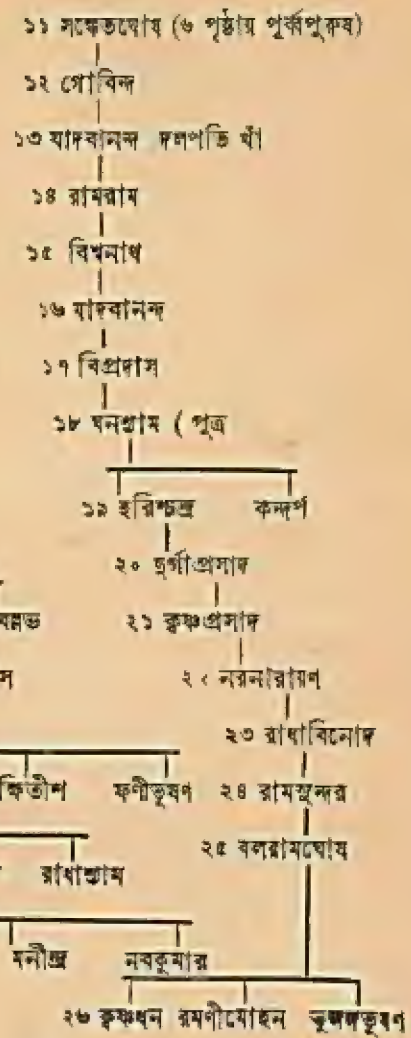 ১১ সঙ্কেতঘোষ (৬ পৃষ্ঠায় পূর্ব্বপুরুষ)
১২ গোবিন্দ
১৩ যাদবানন্দ দলপতি খাঁ
১৪ রামরাম
১৫ বিশ্বনাথ
১৬ যাদবানন্দ
১৭ বিপ্রদাস
১৮ ঘনশ্যাম ( পুত্র
১৯ হরিশ্চন্দ্র কন্দর্প
২০ দুর্গাপ্রসাদ
২১ কৃষ্ণপ্রসাদ
২২ নরনারায়ণ
২৩ রাধাবিনোদ
ক্ষিতীশ ফণীভূষণ ২৪ রামসুন্দর
২৫ বলরামঘোষ
রাধাশ্যাম
মনীন্দ্র নবকুমার
২৬ কৃষ্ণধন রমণীমোহন ভুজঙ্গভূষণ